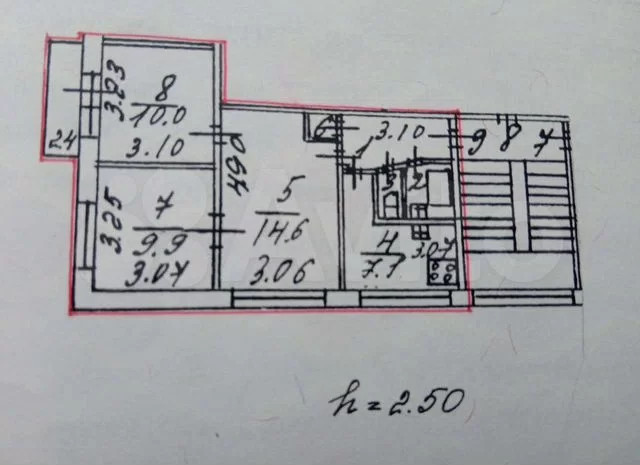 8
10.0
3.23
3.10
2.4
7
9.9
3.25
3.07
5
14.6
4.90
3.06
6
1
3.10
3
2
4
7.1
3.07
9 8 7
h = 2.50